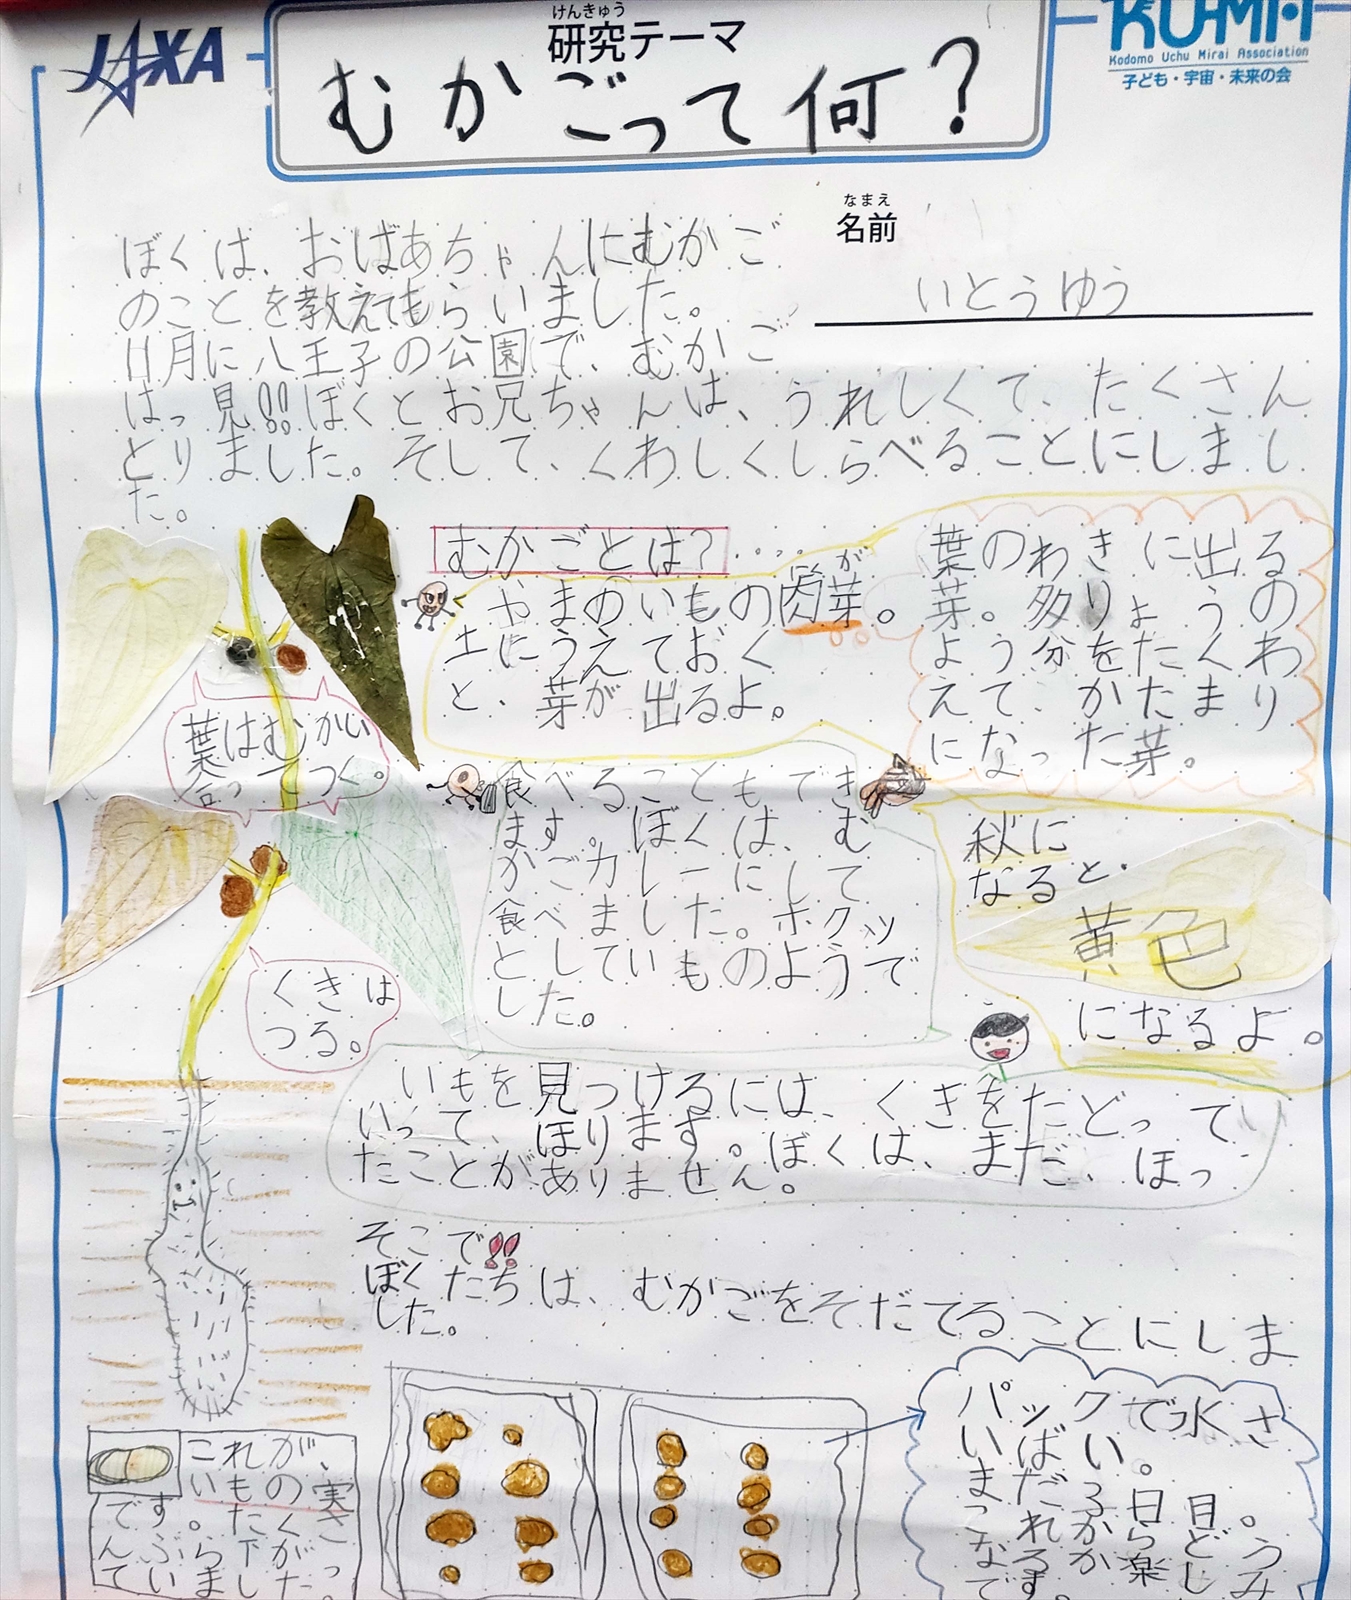 JAXA
けんきゅう
研究テーマ
むかごって何？
KU-MA
Kodomo Uchu Mirai Association
子ども・宇宙・未来の会
なまえ
名前
いとうゆう
ぼくは、おばあちゃんにむかご
のことを教えてもらいました。
11月に八王子の公園で、むかご
はっ見!!ぼくとお兄ちゃんは、うれしくて、たくさん
とりました。そして、くわしくしらべることにしまし
た。
むかごとは?....
やまのいもの肉芽。
が
土にうえておく
と、芽が出るよ。
葉のわきに出る
芽。多りょうの
ようぶんをたくわ
えて、かたまり
になった芽。
葉はむかい
合ってつく。
食べることもでき
ます。ぼくは、む
かごカレーにして
食べました。ホクッ
としていものようで
した。
秋に
なると、
黄色
になるよ。
くきは
つる。
いもを見つけるには、くきをたどって
いって、ほります。ぼくは、まだ、ほっ
たことがありません。
そこで!!
ぼくたちは、むかごをそだてることにしま
した。